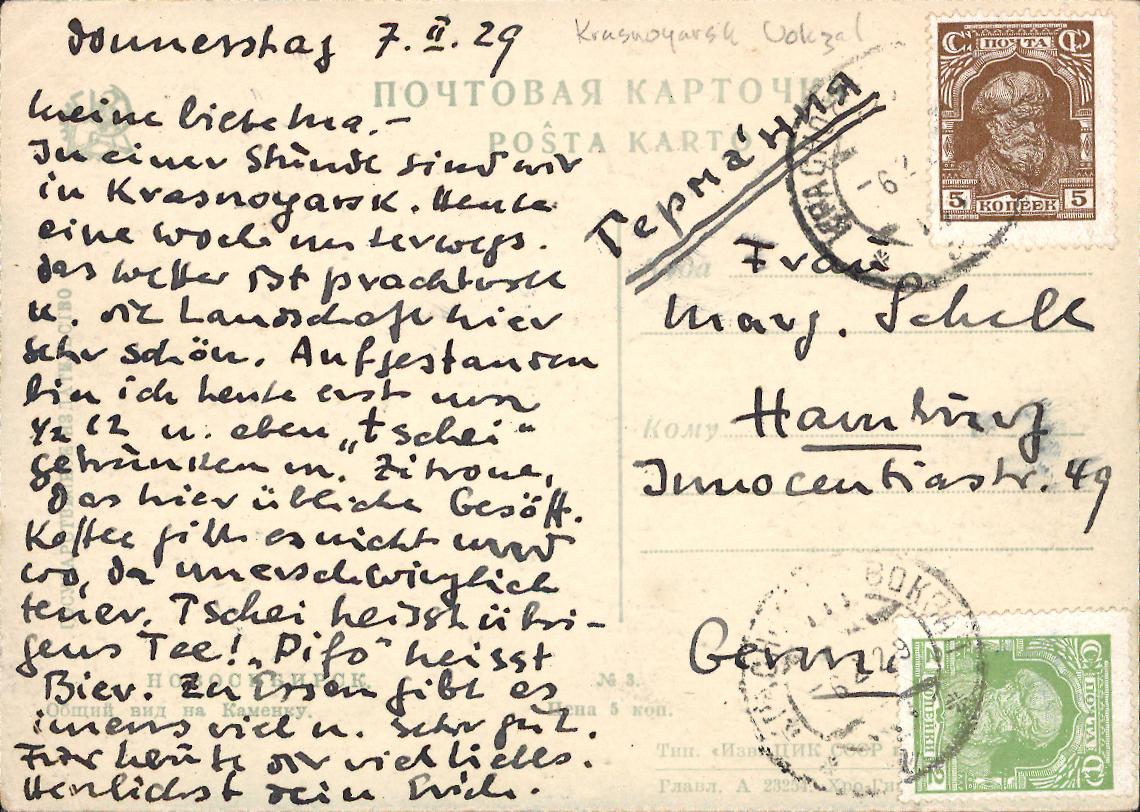 Donnerstag 7.II.29
Krasnoyarsk Vokzal
ПОЧТОВАЯ КАРТОЧК
POŜTA KARTO
Meine liebe Ma.-
In einer Stunde sind wir
in Krasnoyarsk. Heute
eine Woche unterwegs.
Das Wetter ist prachtvoll
u. die Landschaft hier
sehr schön. Aufgestanden
bin ich heute erst um
½ 12 u. eben „tschei"
getrunken m. Zitrone,
das hier übliche Gesöff.
Kaffee gibt es nicht
wo, da unerschwinglich
teuer. Tschei heisst übri-
gens Tee! „Pifo" heisst
Bier. Zu Essen gibt es
viel u. sehr gut.
Für heute dir viel liebes.
Herzlichst dein Erich.
Германия
Куда
Frau
Marg. Schell
Кому
Hamburg
Innocentiastr. 49
Germ
НОВОСИБИРСК.
№ 3.
Общий вид на Каменку.
Цена 5 коп.
Тип. «Изв. ЦИК СССР
Главл. А 23254.
ПОЧТА
5 КОПЕЕК 5
KRAC
-6.2
ВОКЗАЛ
6.2.29
ПОЧТА
2 КОПЕЙКИ 2